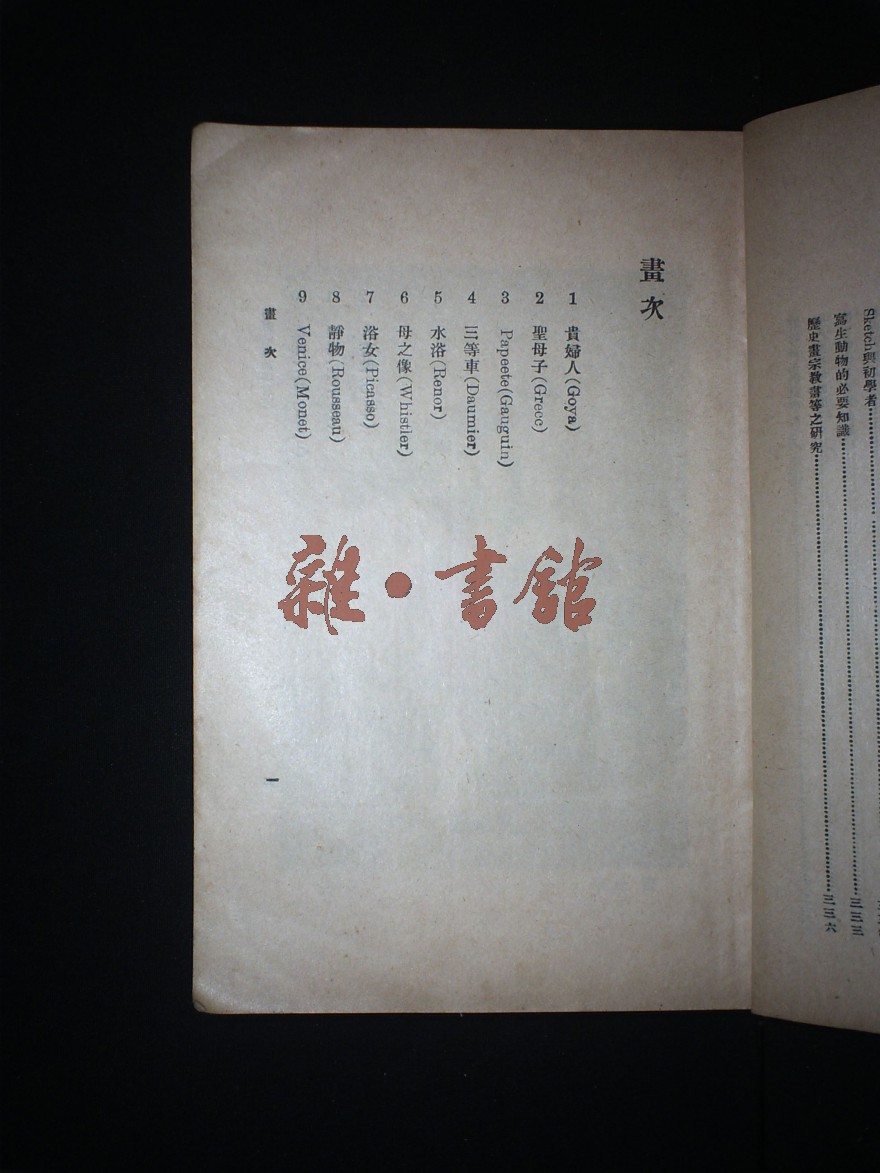 Sketch與初學者
寫生動物的必要知識 三三三
歷史畫宗教畫等之研究 三三六
畫次
1 貴婦人(Goya)
2 聖母子(Grecc)
3 Papeete(Gauguin)
4 三等車(Daumier)
5 水浴(Renor)
6 母之像(Whistler)
7 浴女(Picasso)
8 靜物(Rousseau)
9 Venice(Monet)
畫次
一
雜·書館